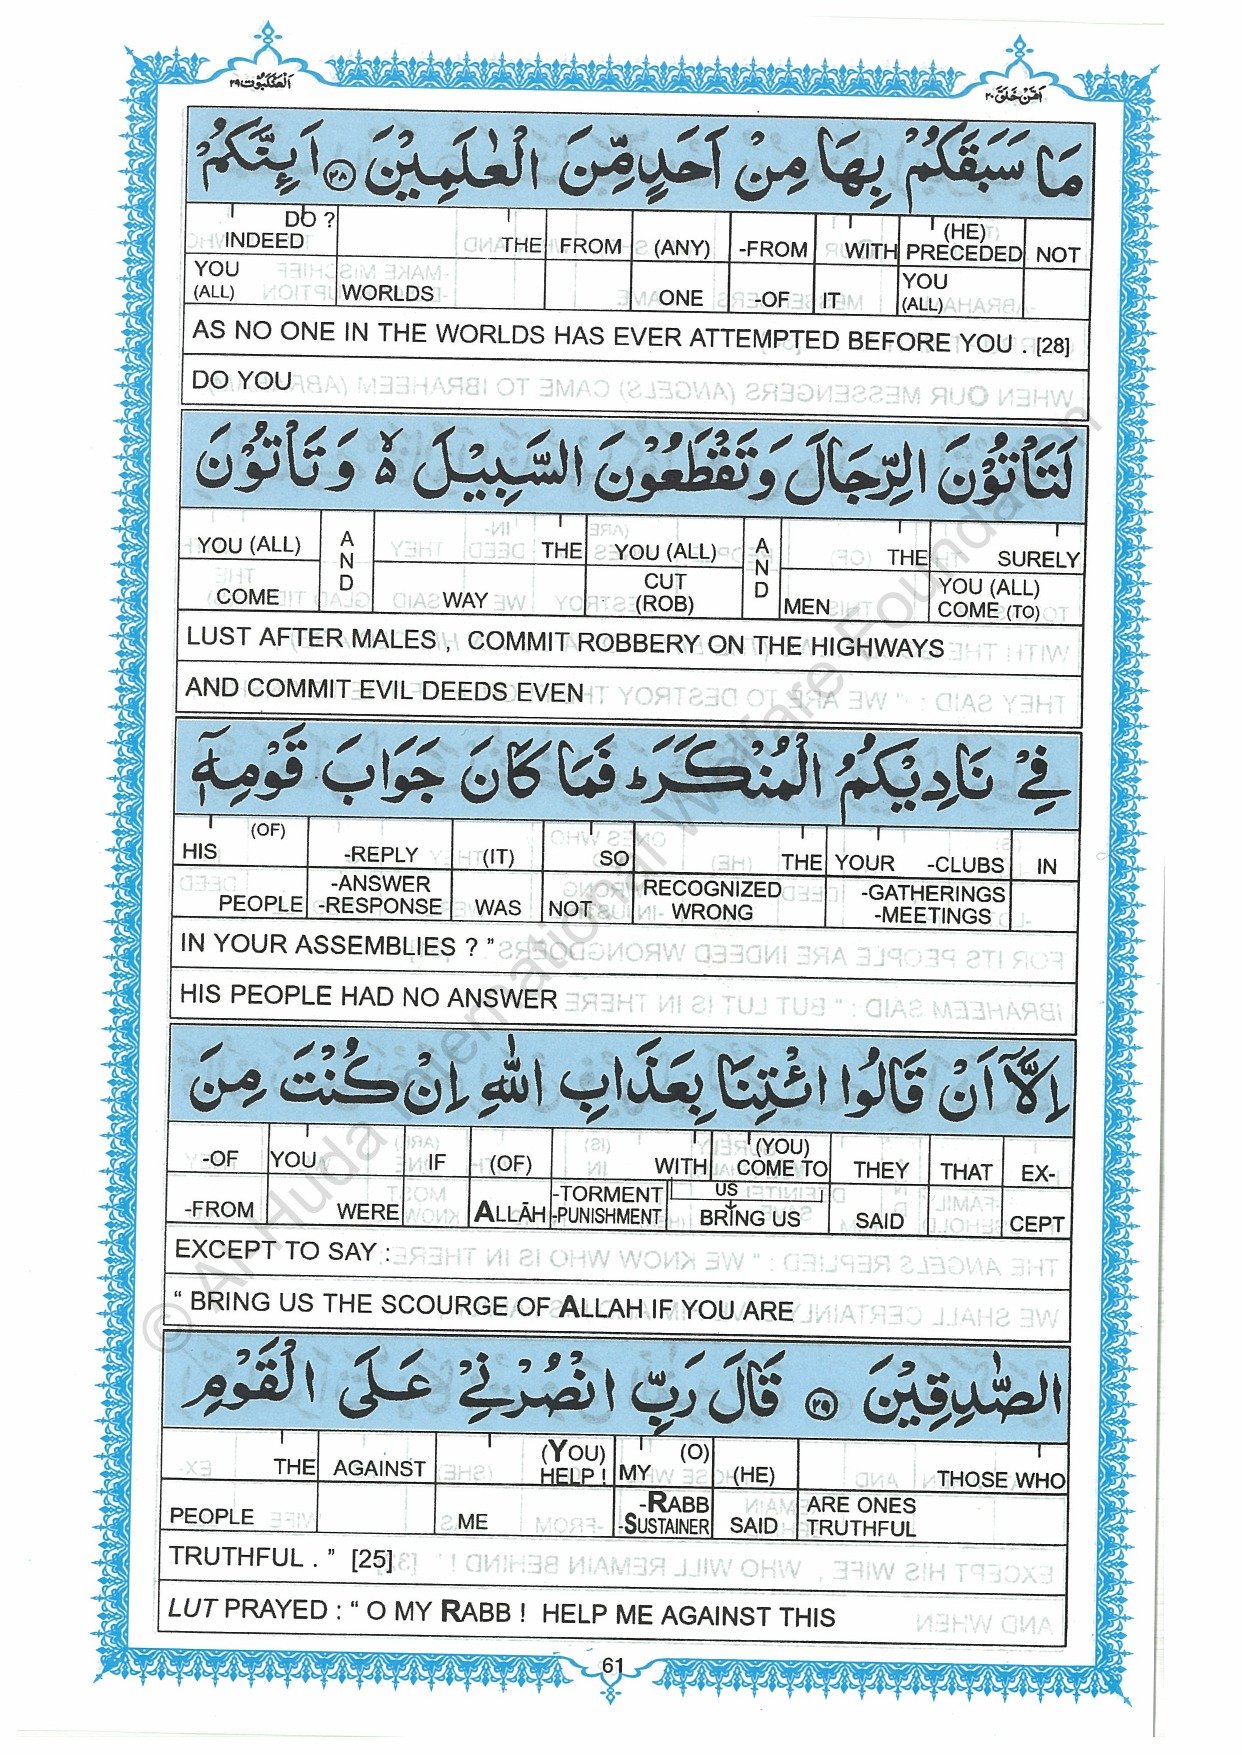 اَلْعَنْكَبُوْت ٢٩
اَمَّنْ خَلَقَ ٢٠
مَا سَبَقَكُمْ بِهَا مِنْ اَحَدٍ مِّنَ الْعٰلَمِيْنَ ٢٨ اَئِنَّكُمْ
DO ? INDEED THE FROM (ANY) -FROM WITH (HE) PRECEDED NOT
YOU (ALL) WORLDS ONE -OF IT YOU (ALL)
AS NO ONE IN THE WORLDS HAS EVER ATTEMPTED BEFORE YOU . [28]
DO YOU
لَتَأْتُوْنَ الرِّجَالَ وَتَقْطَعُوْنَ السَّبِيْلَ ۙ وَتَأْتُوْنَ
YOU (ALL) AND THE YOU (ALL) AND THE SURELY
COME WAY CUT (ROB) MEN YOU (ALL) COME (TO)
LUST AFTER MALES , COMMIT ROBBERY ON THE HIGHWAYS
AND COMMIT EVIL DEEDS EVEN
فِيْ نَادِيْكُمُ الْمُنْكَرَ ؕ فَمَا كَانَ جَوَابَ قَوْمِهٖۤ
HIS (OF) -REPLY (IT) SO THE YOUR -CLUBS IN
PEOPLE -ANSWER -RESPONSE WAS NOT RECOGNIZED WRONG -GATHERINGS -MEETINGS
IN YOUR ASSEMBLIES ? ”
HIS PEOPLE HAD NO ANSWER
اِلَّاۤ اَنْ قَالُوا ائْتِنَا بِعَذَابِ اللّٰهِ اِنْ كُنْتَ مِنَ
-OF YOU IF (OF) WITH (YOU) COME TO THEY THAT EX-
-FROM WERE ALLĀH -TORMENT -PUNISHMENT US BRING US SAID CEPT
EXCEPT TO SAY :
“ BRING US THE SCOURGE OF ALLAH IF YOU ARE
الصّٰدِقِيْنَ ٢٩ قَالَ رَبِّ انْصُرْنِيْ عَلَى الْقَوْمِ
THE AGAINST (YOU) HELP ! MY (O) (HE) THOSE WHO
PEOPLE ME -RABB -SUSTAINER SAID ARE ONES TRUTHFUL
TRUTHFUL . ” [25]
LUT PRAYED : “ O MY RABB ! HELP ME AGAINST THIS
61
© Al Huda International Welfare Foundation